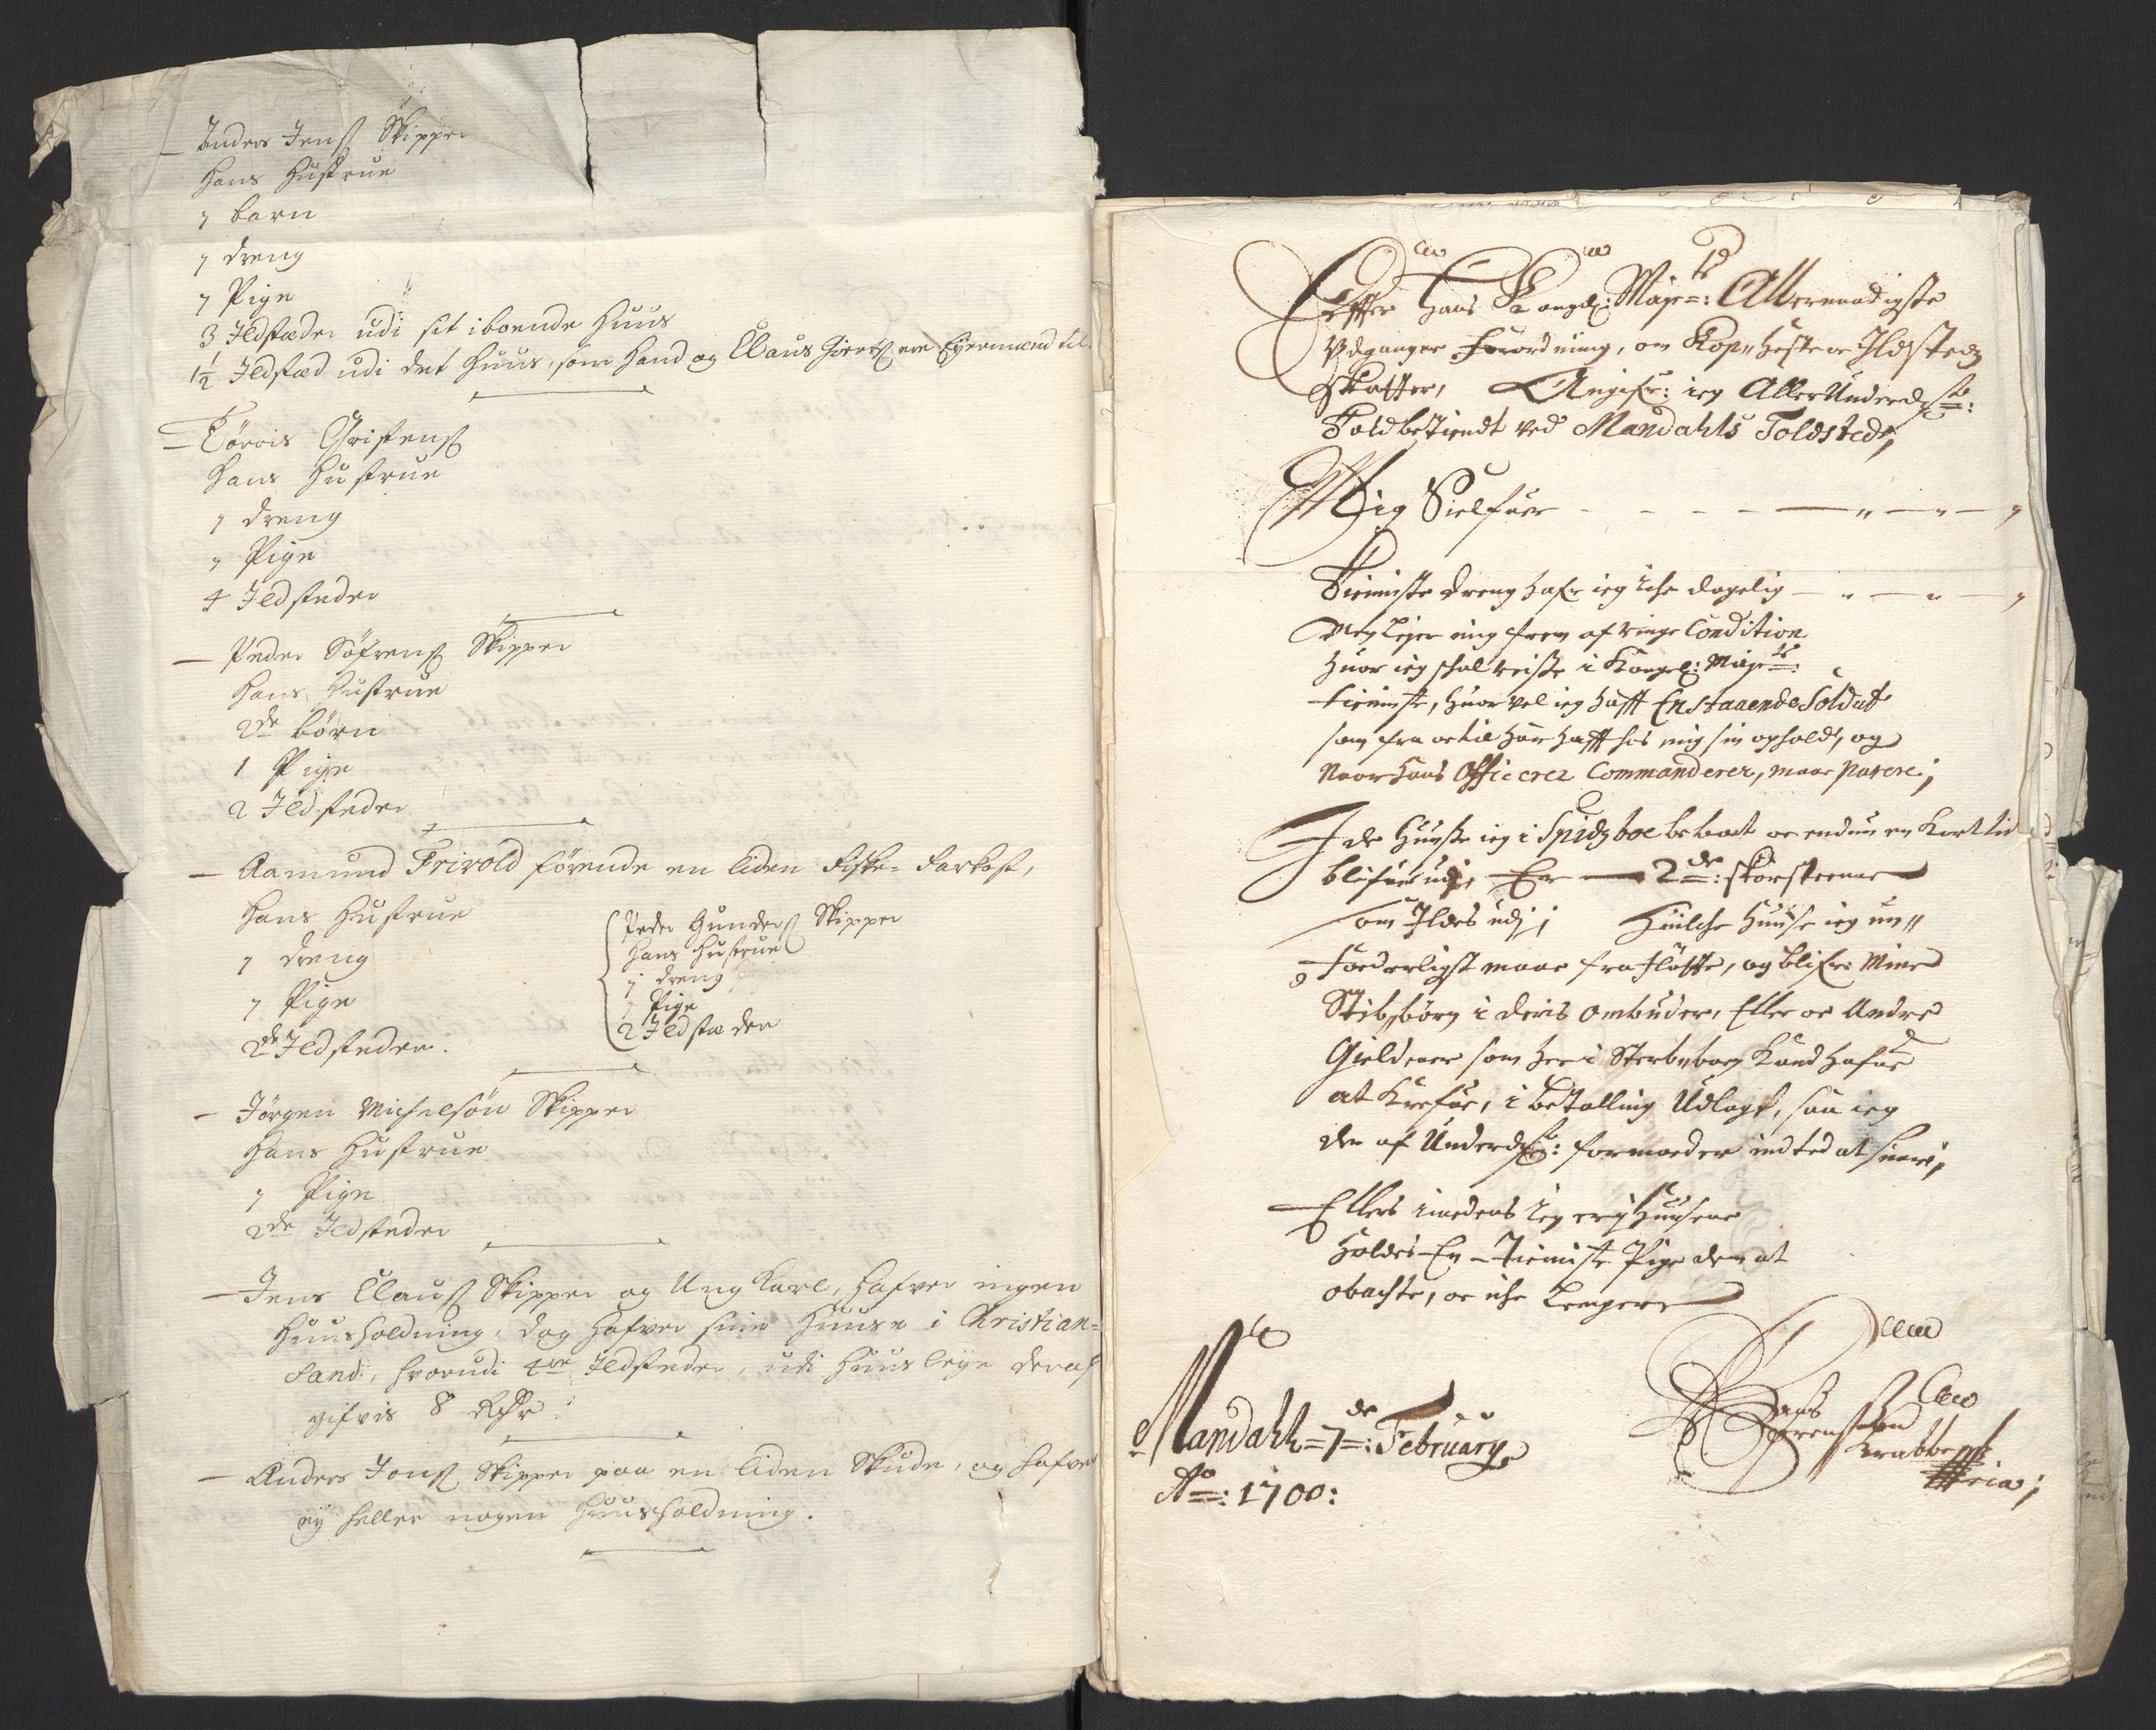 — Anders Jenß Skipper
Hans Hustrue
1 barn
1 dreng
1 Pige
3 Ildstæder udi sit iboende Huus
1½ Ildsted udi det Huus, som Hand og Claus Giertß ere Eyermænd til.
— Tørris Christenß
Hans Hustrue
1 dreng
1 Pige
4 Ildsteder
— Peder Söfrenß Skipper
Hans Hustrue
2de börn
1 Pige
2 Ildsteder
— Aamund Frivold förende en liden Fiske-Farkost,
Hans Hustrue
1 dreng
1 Pige
2de Ildsteder.
Peder Gunderß Skipper
Hans Hustrue
1 dreng
1 Pige
2 Ildstæder
— Jörgen Michelsön Skipper
Hans Hustrue
1 Pige
2de Ildsteder
— Jens Clausß Skipper og Ung Karl, hafver ingen
Huusholdning, dog hafver sine Huuse i Christian=
sand, hvorudi 4re Ildsteder, udi Huusleye deraf
gifvis 8 Rdr
— Anders Jonß Skipper paa en liden Skude, og hafver
ey heller nogen Huusholdning.
Effter Hans Kongl: Maje=ts: Allernaadigste
Udgangne Forordning, om Kop, Heste oc Ildsteds
Skatter, Angifr: ieg AllerUnderdste:
Toldbetient ved Mandahls Toldsted,
Mig Sielfuer — — — — " — " — 1
Tienniste dreng hafr ieg iche dagelig — " — " — 1
men lejer mig frem af ringe Condition
huor ieg schal reise i Kongel: Majets:
tienniste, huor vel ieg hafft En staaende Soldat
som fra oc til har hafft hos mig sin ophold, og
naar hans Officerer Commanderer, maae parere;
I de Huuse ieg i Spidzboe beboet oc endnu en kort tid
blifuer udj, Er — 2de: skorsteene
om Ildes udj; Huilche Huuse ieg uu"
forderligst maae fraflötte, og blifr mine
Stibbörn i deris ombuder, Eller oc Andre
Gieldener som her i Sterboen kand hafue
at Kræfue, i betalling Udlagt, saa ieg
der af Underdst: formoder indted at suare,
Ellers imedens ieg er j Huusene
holdes En tienniste Pige dem at
obachte, oc iche lenger
Mandahl 7de: February
Ao: 1700:
Hans
Sörensen
Krabbe